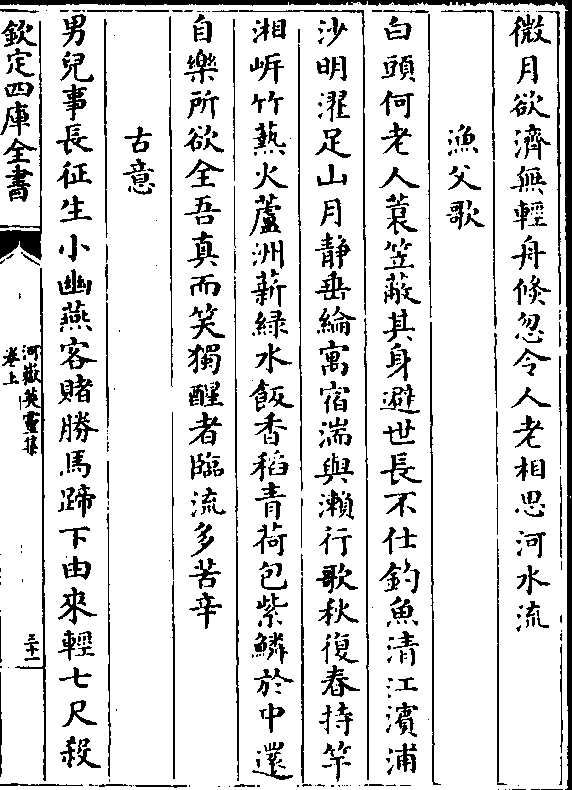 微月欲濟無輕舟倐忽令人老相思河水流
漁父歌
白頭何老人蓑笠蔽其身避世長不仕釣魚清江濱浦
沙明濯足山月靜垂綸寓宿湍與瀨行歌秋復春持竿
湘岍竹爇火蘆洲薪緑水飯香稻青荷包紫鱗於中還
自樂所欲全吾真而笑獨醒者臨流多苦辛
古意
男兒事長征生小幽燕客賭勝馬蹄下由來輕七尺殺
欽定四庫全書
河嶽英靈集
卷上
三十一